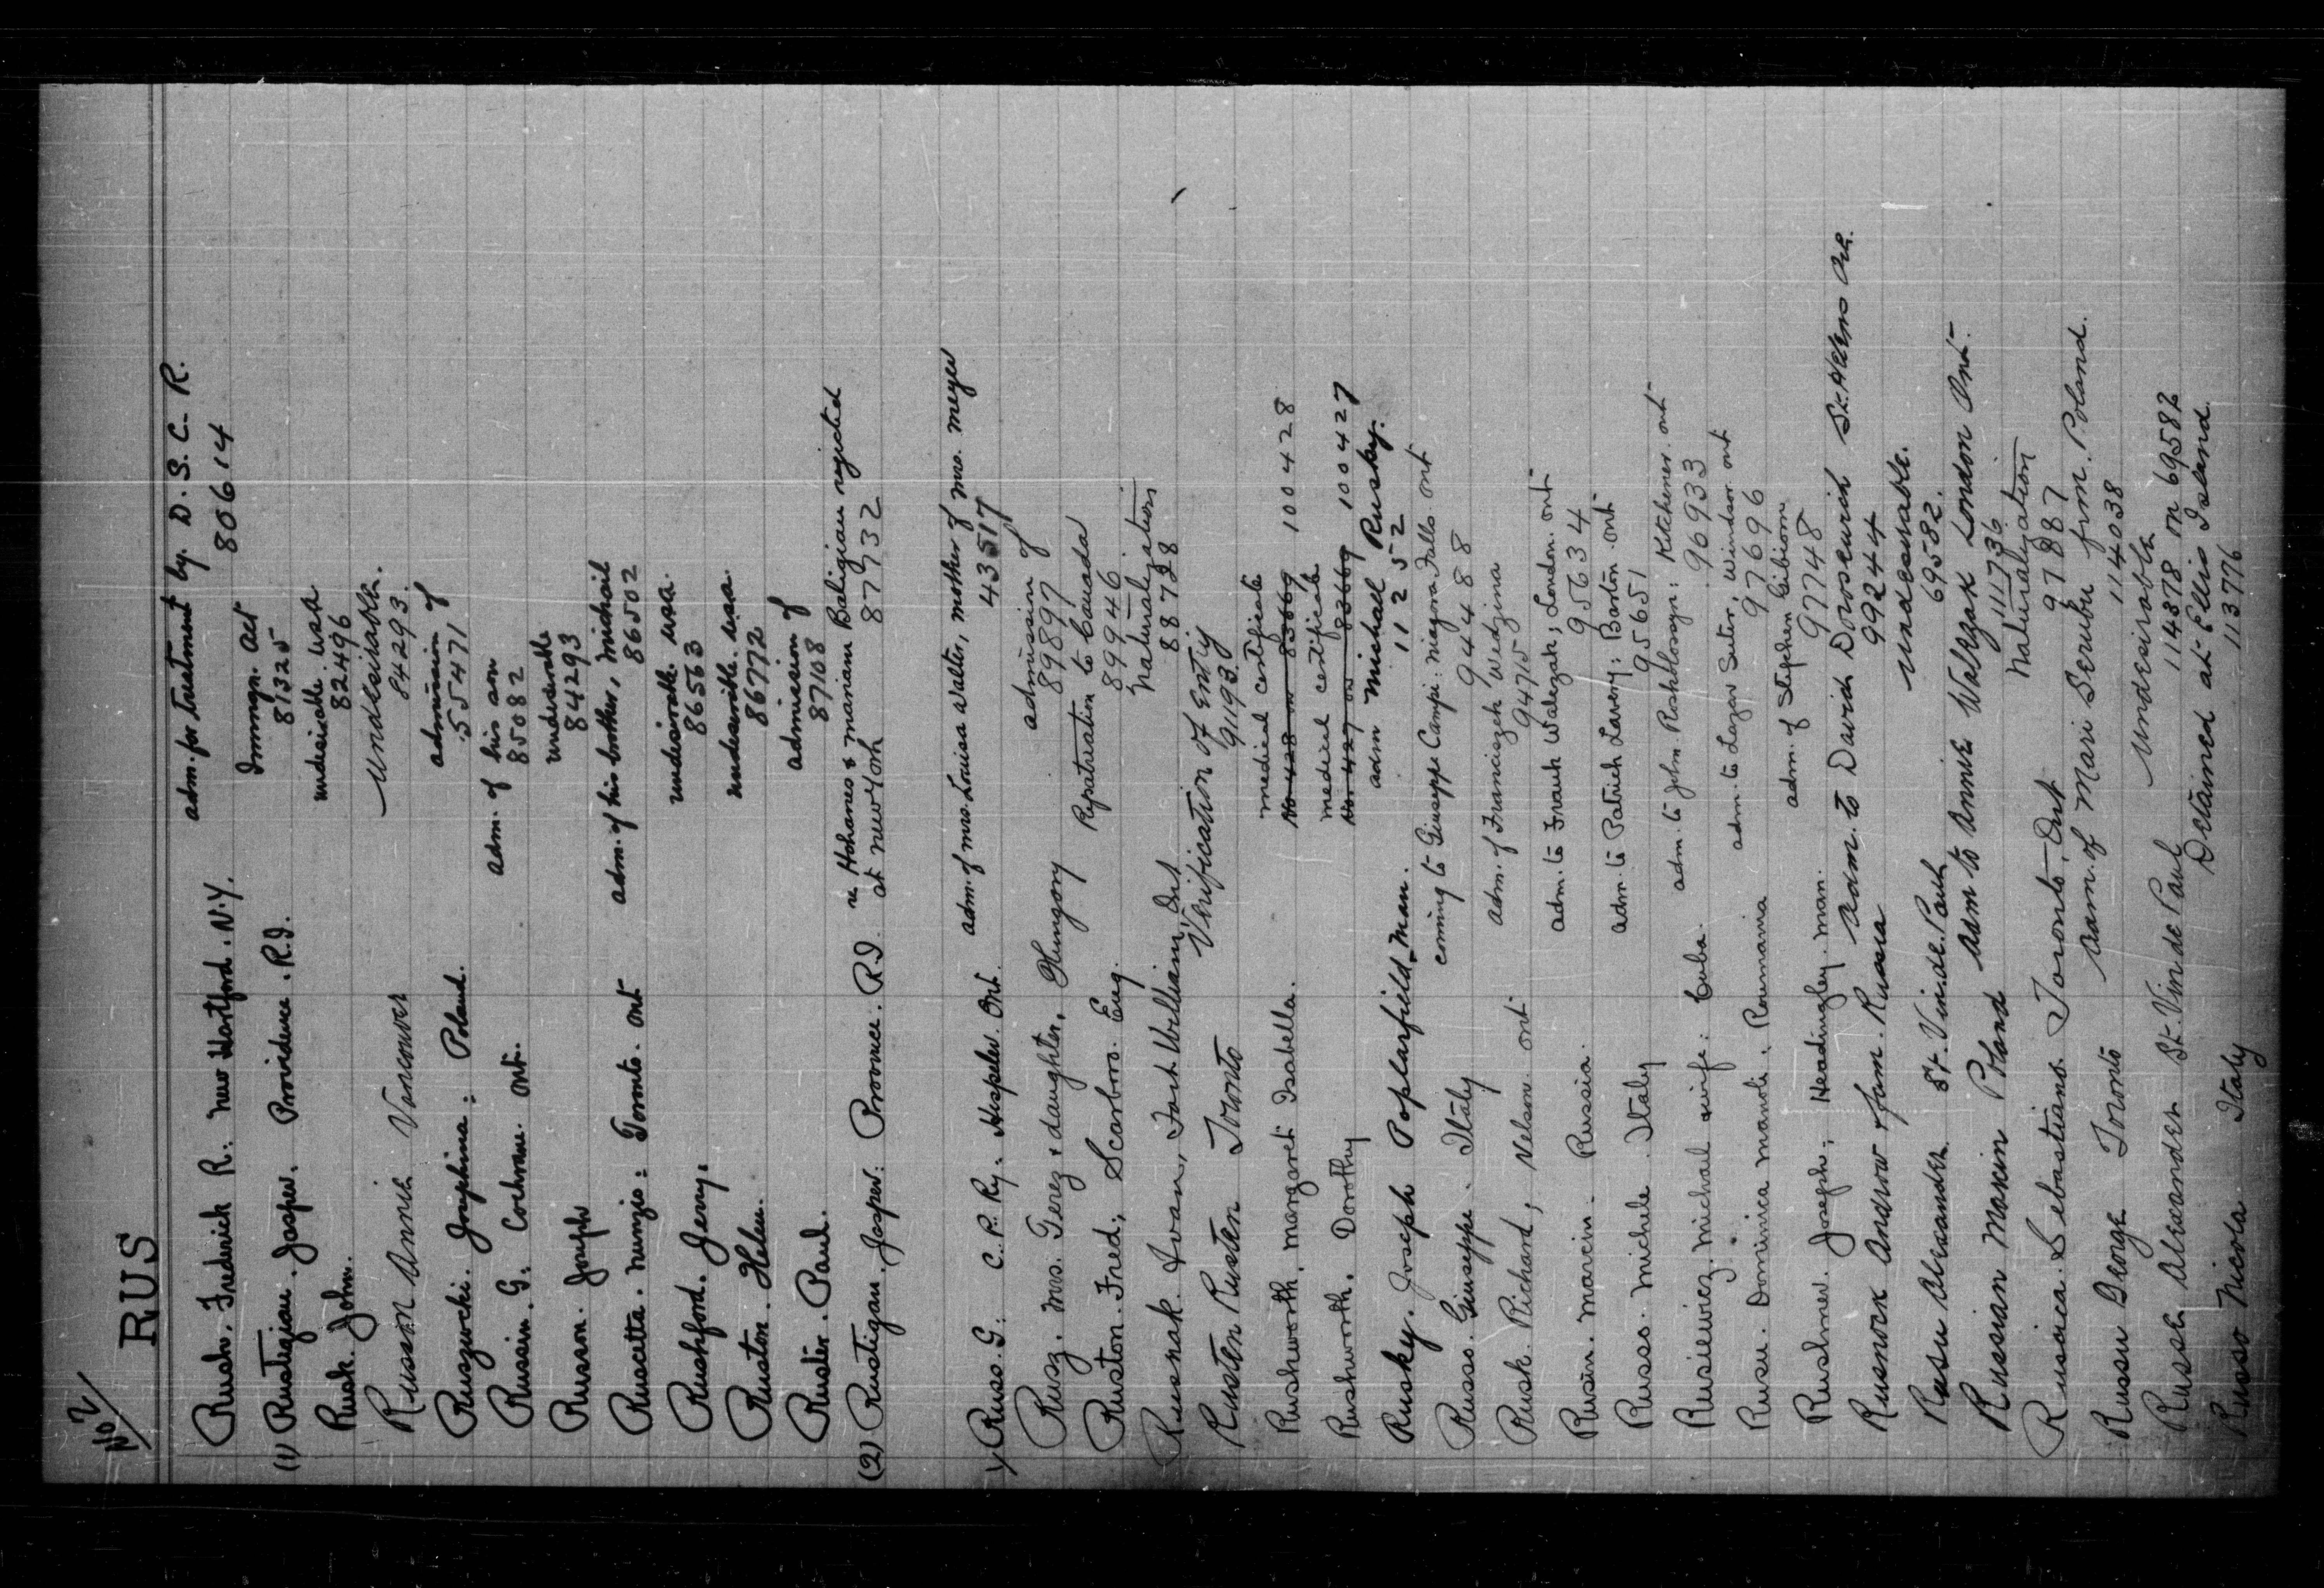 No 2
RUS
Rush. Frederick R. New Hartford. N.Y. adm. for treatment by. D. S. C. R.
80614
(1) Rustigian. Jasper. Providence. R.I. Immgn. Act
81325
Rusk. John. undesirable USA
82496
Russon Annie Vancouver Undesirable.
84293
Ruszwcki. Josephina: Poland. admission of
555471
Russin. G. Cochrane. Ont. adm. of his son
85082
Russon. Joseph undesirable
84293
Ruscetta. Nunzio: Toronto. Ont adm. of his brother, Michail
86502
Rushford. Jerry. undesirable. USA.
86563
Ruston. Helen. undesirable. USA.
86772
Ruster. Paul. admission of
87108
(2) Rustigan. Jasper: Province. R.I. re Hohanes & Mariam Baligian rejected
at New York 87732
Russ. G: C. P. Ry. Hespeler. Ont. adm. of Mrs. Louisa Walter, mother of Mrs. Meyer
43517
Rusz. Mrs. Terez & daughter, Hungary admission of
89897
Ruston. Fred, Scarboro. Eng. Repatriation to Canada
89946
Rusnak. Ivan, Fort William, Ont Naturalization
88728
Rusten Rusten Toronto Verification of Entry
91193
Rushworth. Margaret Isabella. medical certificate
No 428 on 83669 100428
Rushworth. Dorothy medical certificate
No. 427 on 83669 100427
Rusky. Joseph Poplarfield Man. adm Michael Rusky.
112552
Russo. Giuseppe. Italy coming to Giuseppe Campi: Niagara Falls. Ont
94488
Rusk. Richard, Nelson. Ont adm. of Franciszek Wedzina
94715
Rusin. Marcin. Russia. adm. to Frank Walezak; London. Ont
95634
Russo. Michele. Italy adm. to Patrick Lavery: Barton. Ont
95651
Rusiewicz. Michail wife: Cuba. adm. to John Roshblosyn: Kitchener. Ont
96933
Rusu. Dominica Manoli. Roumania adm. to Lazar Suter, Windsor Ont
97696
Rushner. Joseph: Headingley. Man. adm. of Stephen Gibiom
97748
Rusnock Andrew fam. Russia Adm. to David Doroscurich St. Helens Ave.
99244
Rusu Alexander St. Vin de. Paul Undesirable.
69582.
Russian Maxim Poland Adm to Annie Walezak London Ont.
111736
Ruscica. Sebastiano. Toronto, Ont Naturalization
97887
Russu George Toronto Adm. of Mari Serubu from. Poland.
114038
Russu Alexander St. Vin de Paul Undesirable
114378 on 69582
Russo Nicola Italy Detained at Ellis Island.
113776